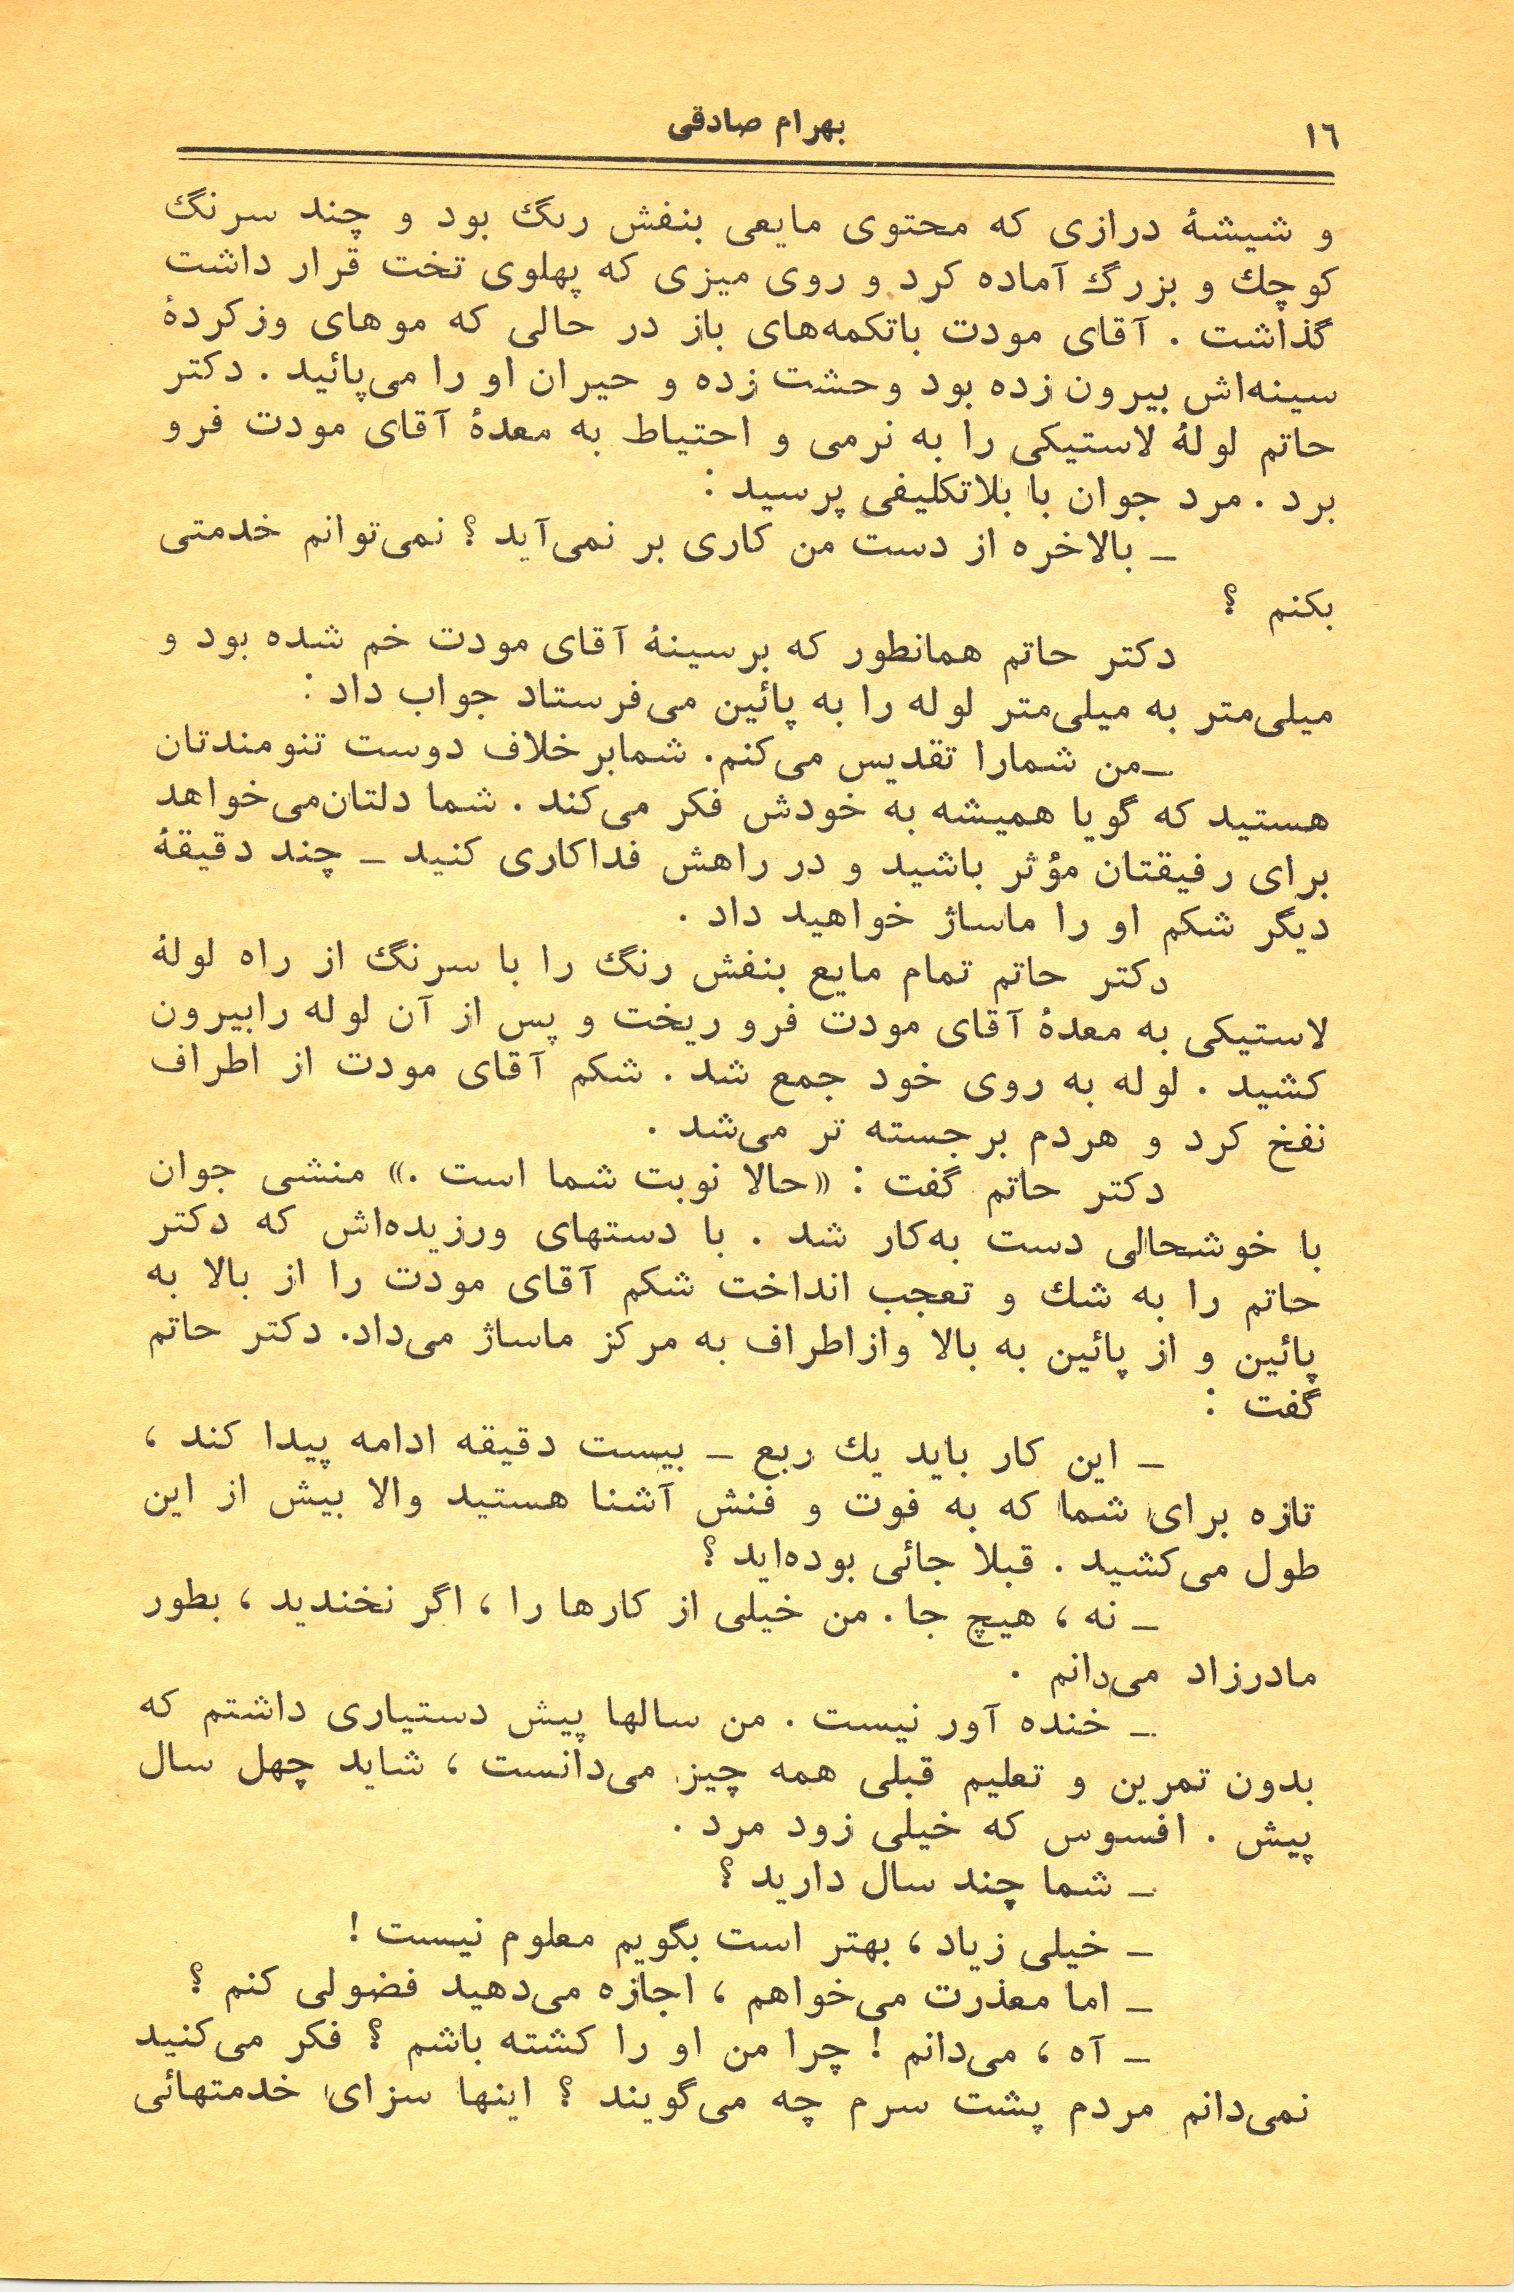 ۱٦
بهرام صادقی
و شیشهٔ درازی که محتوی مایعی بنفش رنگ بود و چند سرنگ
کوچك و بزرگ آماده کرد و روی میزی که پهلوی تخت قرار داشت
گذاشت . آقای مودت باتکمه‌های باز در حالی که موهای وزکردهٔ
سینه‌اش بیرون زده بود وحشت زده و حیران او را می‌پائید . دکتر
حاتم لولهٔ لاستیکی را به نرمی و احتیاط به معدهٔ آقای مودت فرو
برد . مرد جوان با بلاتکلیفی پرسید :
ـ بالاخره از دست من کاری بر نمی‌آید ؟ نمی‌توانم خدمتی
بکنم ؟
دکتر حاتم همانطور که برسینهٔ آقای مودت خم شده بود و
میلی‌متر به میلی‌متر لوله را به پائین می‌فرستاد جواب داد :
ـ من شمارا تقدیس می‌کنم. شمابرخلاف دوست تنومندتان
هستید که گویا همیشه به خودش فکر می‌کند . شما دلتان‌می‌خواهد
برای رفیقتان مؤثر باشید و در راهش فداکاری کنید ـ چند دقیقهٔ
دیگر شکم او را ماساژ خواهید داد .
دکتر حاتم تمام مایع بنفش رنگ را با سرنگ از راه لولهٔ
لاستیکی به معدهٔ آقای مودت فرو ریخت و پس از آن لوله رابیرون
کشید . لوله به روی خود جمع شد . شکم آقای مودت از اطراف
نفخ کرد و هردم برجسته تر می‌شد .
دکتر حاتم گفت : «حالا نوبت شما است .» منشی جوان
با خوشحالی دست به‌کار شد . با دستهای ورزیده‌اش که دکتر
حاتم را به شك و تعجب انداخت شکم آقای مودت را از بالا به
پائین و از پائین به بالا وازاطراف به مرکز ماساژ می‌داد. دکتر حاتم
گفت :
ـ این کار باید یك ربع ـ بیست دقیقه ادامه پیدا کند ،
تازه برای شما که به فوت و فنش آشنا هستید والا بیش از این
طول می‌کشید . قبلا جائی بوده‌اید ؟
ـ نه ، هیچ جا . من خیلی از کارها را ، اگر نخندید ، بطور
مادرزاد می‌دانم .
ـ خنده آور نیست . من سالها پیش دستیاری داشتم که
بدون تمرین و تعلیم قبلی همه چیز می‌دانست ، شاید چهل سال
پیش . افسوس که خیلی زود مرد .
ـ شما چند سال دارید ؟
ـ خیلی زیاد ، بهتر است بگویم معلوم نیست !
ـ اما معذرت می‌خواهم ، اجازه می‌دهید فضولی کنم ؟
ـ آه ، می‌دانم ! چرا من او را کشته باشم ؟ فکر می‌کنید
نمی‌دانم مردم پشت سرم چه می‌گویند ؟ اینها سزای خدمتهائی